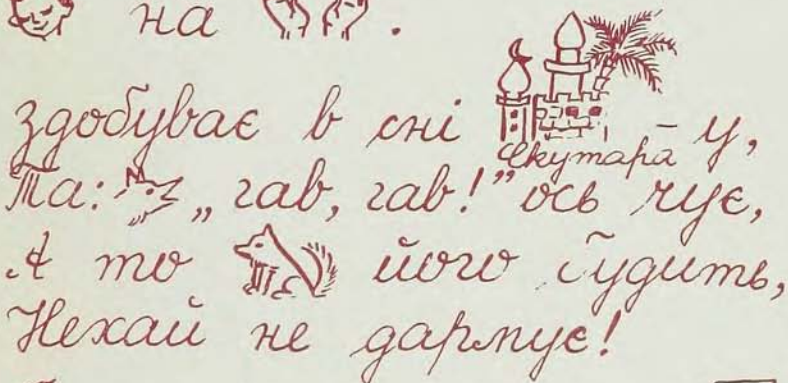 на .
здобуває в сні Скутара – у,
Та: „гав, гав!” ось чує,
А то його будить,
Нехай не дармує!